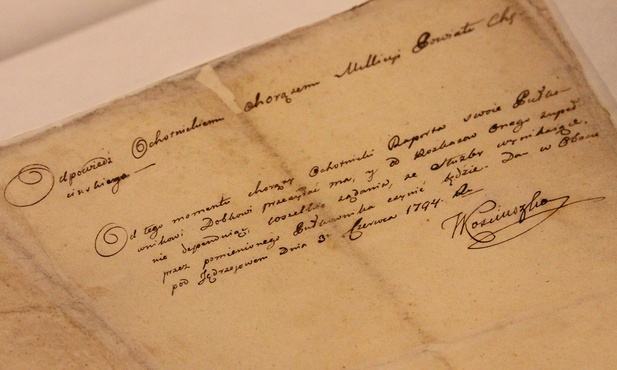 Odpowiedź Ochotnickiemu Chorążemu Milicyi Powiatu Chę-
cińskiego —
Od tego momentu chorąży Ochotnicki Raporta swoie Pułko-
wnikowi Dobkowi przesyłać ma, y od Rozkazow Onego zupeł
nie dependuiąc, wszelkie żądania, ze Służby wynikaiące,
przez pomienionego Pułkownika czynić będzie. Dan w Obozie
pod Jędrzejowem Dnia 3. Czerwca 1794. R
TKosciuszko